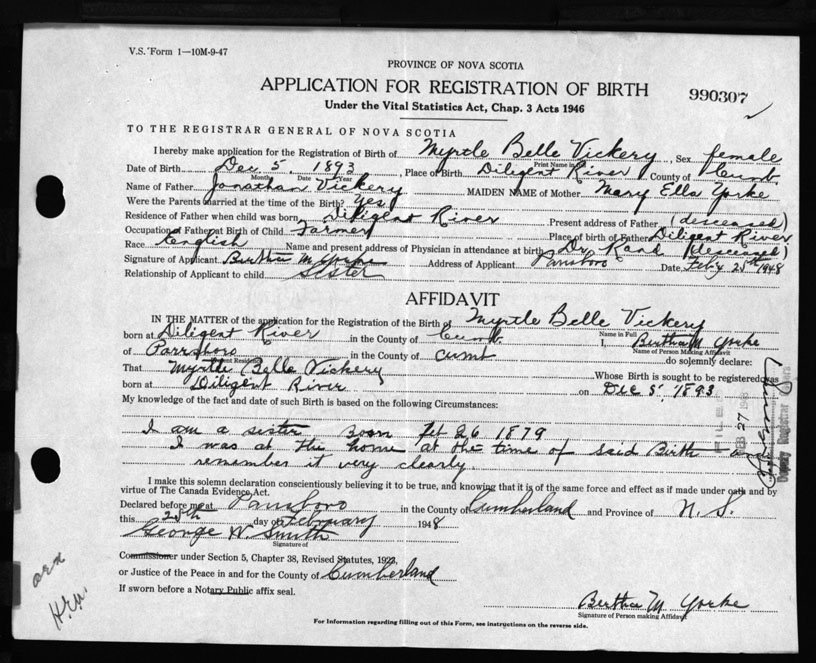 V.S. Form 1—10M-9-47
PROVINCE OF NOVA SCOTIA
APPLICATION FOR REGISTRATION OF BIRTH
990307
Under the Vital Statistics Act, Chap. 3 Acts 1946
TO THE REGISTRAR GENERAL OF NOVA SCOTIA
I hereby make application for the Registration of Birth of Myrtle Belle Vickery, Sex female
Print Name in Full
Date of Birth Dec 5, 1893, Place of Birth Diligent River County of Cumb.
Month Date Year
Name of Father Jonathan Vickery MAIDEN NAME of Mother Mary Ella Yorke
Were the Parents married at the time of the Birth? Yes
Residence of Father when child was born Diligent River Present address of Father (deceased)
Occupation of Father at Birth of Child Farmer Place of birth of Father Diligent River
Race English Name and present address of Physician in attendance at birth Dr. Rand (deceased)
Signature of Applicant Bertha M Yorke Address of Applicant Parrsboro Date Feb'y 25th 1948
Relationship of Applicant to child Sister
AFFIDAVIT
IN THE MATTER of the application for the Registration of the Birth of Myrtle Belle Vickery
Name in Full
born at Diligent River in the County of Cumb. I, Bertha M. Yorke
Name of Person Making Affidavit
of Parrsboro in the County of cumb do solemnly declare:
Present Residence
That Myrtle Belle Vickery Whose Birth is sought to be registered was
born at Diligent River on Dec 5, 1893
My knowledge of the fact and date of such Birth is based on the following Circumstances:
I am a sister Born Feb 26 1879
I was at the home at the time of said Birth and
remember it very clearly
FILED
FEB 27 1948
Deputy Registrar General
I make this solemn declaration conscientiously believing it to be true, and knowing that it is of the same force and effect as if made under oath and by
virtue of The Canada Evidence Act.
Declared before me at Parrsboro in the County of Cumberland and Province of N. S.
this 25th day of February 1948
George W. Smith
Signature of
Commissioner under Section 5, Chapter 38, Revised Statutes, 1923,
or Justice of the Peace in and for the County of Cumberland
If sworn before a Notary Public affix seal.
Bertha M Yorke
Signature of Person making Affidavit
For Information regarding filling out of this Form, see instructions on the reverse side.